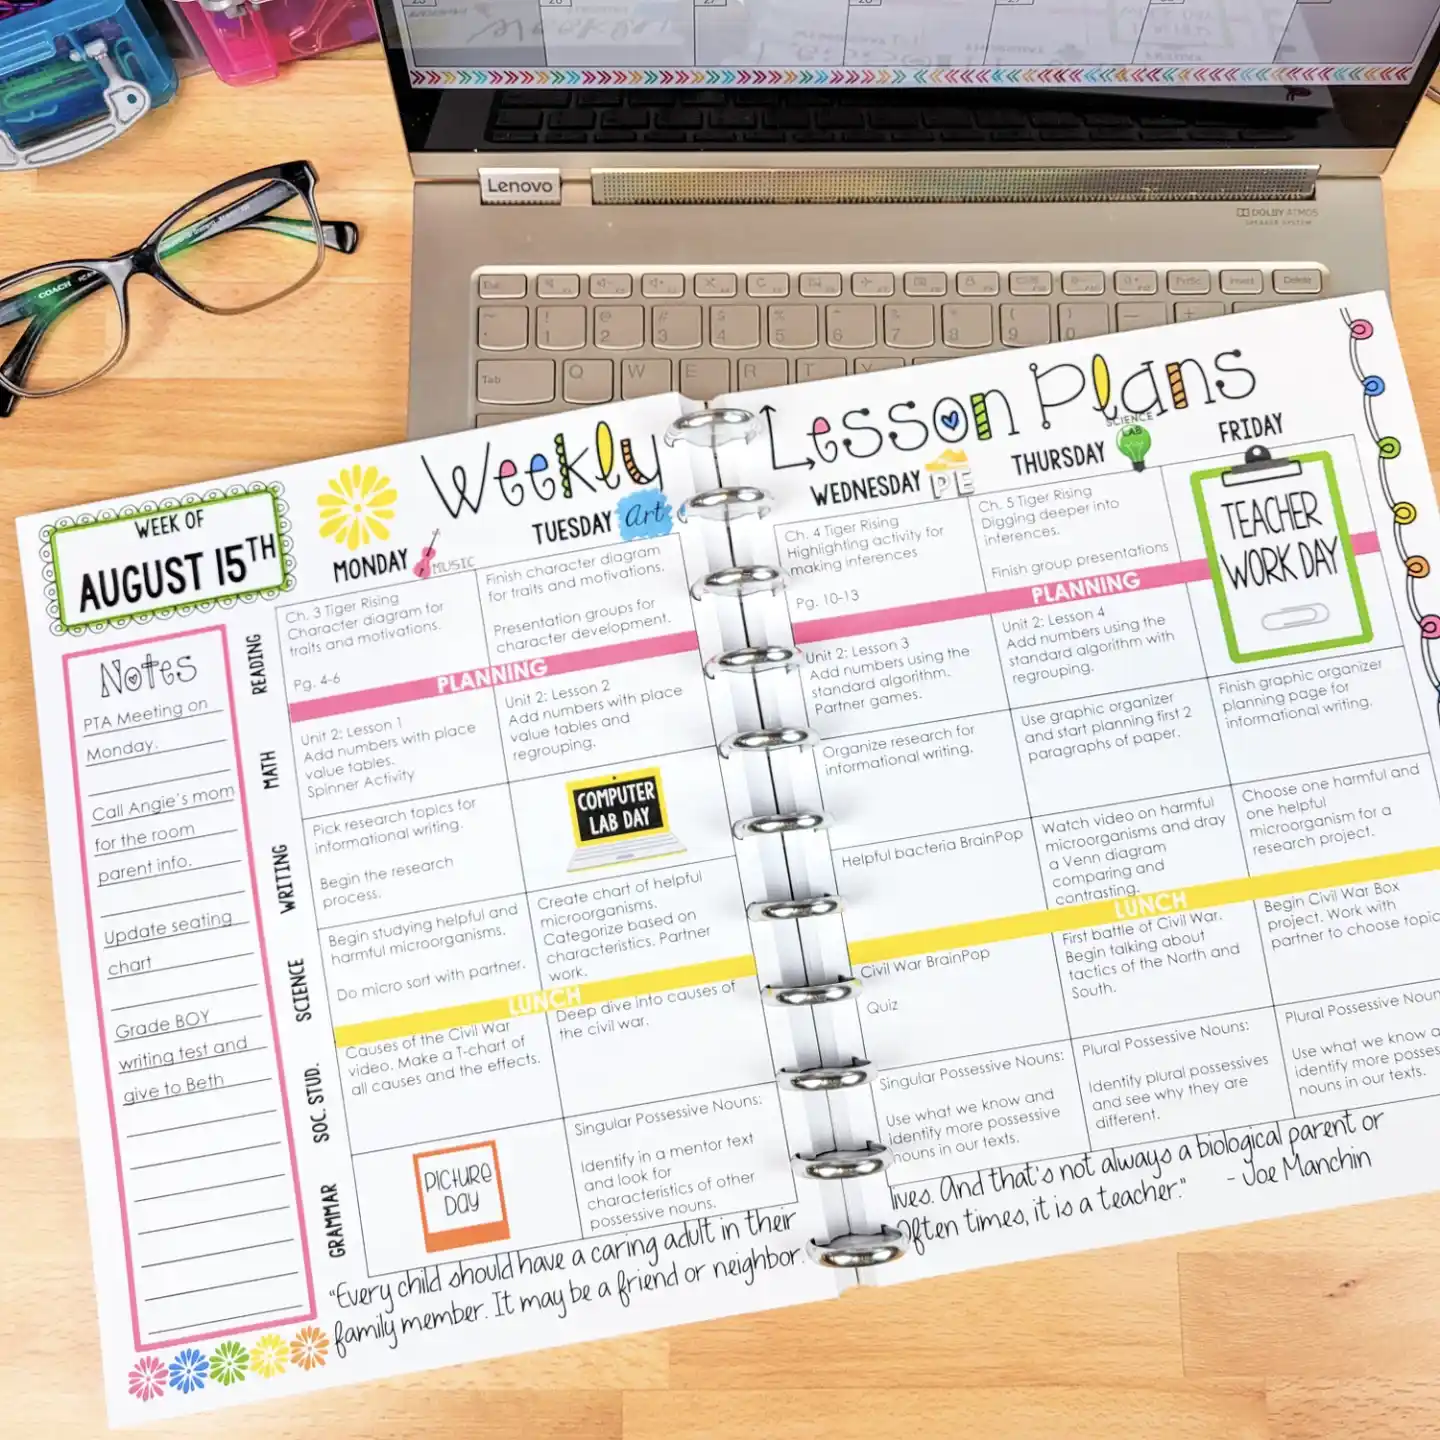 Lenovo
DOLBY ATMOS
SPEAKER SYSTEM
COACH
Esc
PrtSc
Insert
Delete
Tab
Q
W
E
R
T
Y
Weekly Lesson Plans
WEEK OF
AUGUST 15TH
MONDAY
MUSIC
TUESDAY
Art
WEDNESDAY
PE
THURSDAY
SCIENCE
LAB
FRIDAY
Notes
PTA Meeting on
Monday.
Call Angie's mom
for the room
parent info.
Update seating
chart
Grade BOY
writing test and
give to Beth
READING
Ch. 3 Tiger Rising
Character diagram for
traits and motivations.
Pg. 4-6
Finish character diagram
for traits and motivations.
Presentation groups for
character development.
Ch. 4 Tiger Rising
Highlighting activity for
making inferences
Pg. 10-13
Ch. 5 Tiger Rising
Digging deeper into
inferences.
Finish group presentations
TEACHER
WORK DAY
PLANNING
PLANNING
MATH
Unit 2: Lesson 1
Add numbers with place
value tables.
Spinner Activity
Unit 2: Lesson 2
Add numbers with place
value tables and
regrouping.
Unit 2: Lesson 3
Add numbers using the
standard algorithm.
Partner games.
Unit 2: Lesson 4
Add numbers using the
standard algorithm with
regrouping.
WRITING
Pick research topics for
informational writing.
Begin the research
process.
COMPUTER
LAB DAY
Organize research for
informational writing.
Use graphic organizer
and start planning first 2
paragraphs of paper.
Finish graphic organizer
planning page for
informational writing.
SCIENCE
Begin studying helpful and
harmful microorganisms.
Do micro sort with partner.
Create chart of helpful
microorganisms.
Categorize based on
characteristics. Partner
work.
Helpful bacteria BrainPop
Watch video on harmful
microorganisms and dray
a Venn diagram
comparing and
contrasting.
Choose one harmful and
one helpful
microorganism for a
research project.
LUNCH
LUNCH
SOC. STUD.
Causes of the Civil War
video. Make a T-chart of
all causes and the effects.
Deep dive into causes of
the civil war.
Civil War BrainPop
Quiz
First battle of Civil War.
Begin talking about
tactics of the North and
South.
Begin Civil War Box
project. Work with
partner to choose topic
GRAMMAR
PICTURE
DAY
Singular Possessive Nouns:
Identify in a mentor text
and look for
characteristics of other
possessive nouns.
Singular Possessive Nouns:
Use what we know and
identify more possessive
nouns in our texts.
Plural Possessive Nouns:
Identify plural possessives
and see why they are
different.
Plural Possessive Noun
Use what we know a
identify more posses
nouns in our texts.
"Every child should have a caring adult in their
family member. It may be a friend or neighbor.
lives. And that's not always a biological parent or
Often times, it is a teacher."
- Joe Manchin